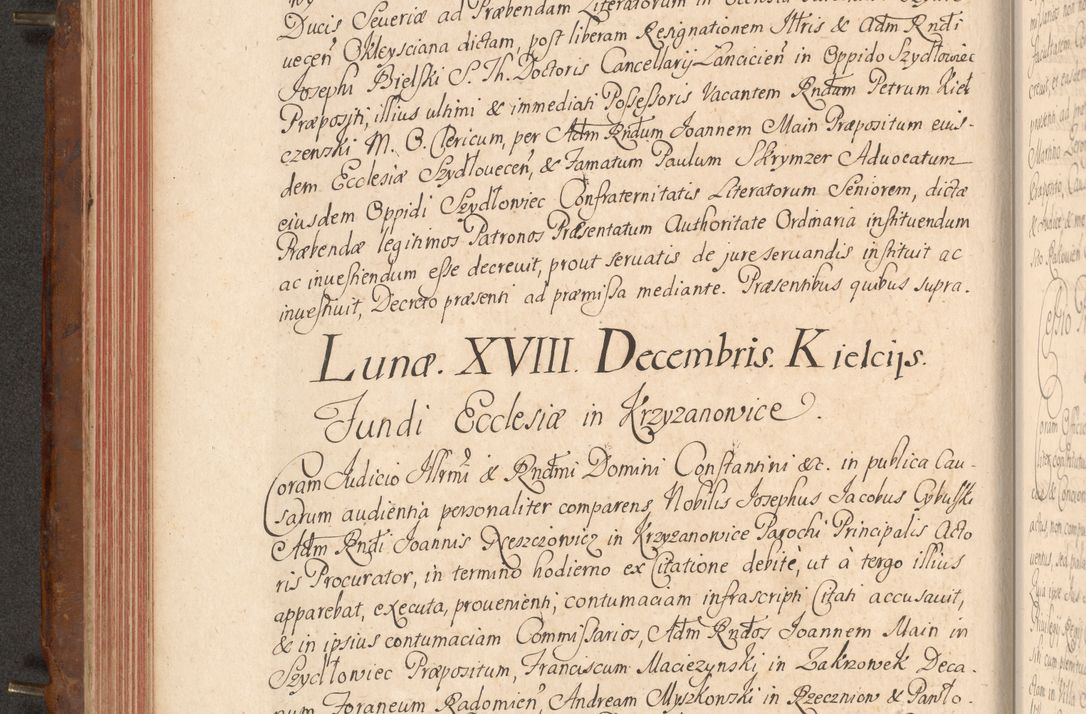 Ducis Severiæ ad Præbendam Literatorum in Ecclesia
uecen̄ Okleysciana dictam, post liberam Resignationem Illtris & Adm Rndi
Josephi Bielski S. Th. Doctoris Cancellarij Lancicien̄ in Oppido Szydłowiec
Præpositi, illius ultimi & immediati Possessoris Vacantem Rndum Petrum Kieł
czewski M. O. Clericum, per Adm Rndum Joannem Main Præpositum eius-
dem Ecclesiæ Szydłouecen̄, & Famatum Paulum Skrymzer Aduocatum
eiusdem Oppidi Szydłowiec Confraternitatis Literatorum Seniorem, dictæ
Præbendæ legitimos Patronos Præsentatum Authoritate Ordinaria instituendum
ac inuestiendum esse decreuit, prout seruatis de jure seruandis instituit ac
inuestiuit, Decreto præsenti ad præmissa mediante. Præsentibus quibus supra.
Lunæ. XVIII. Decembris. Kielcijs.
Fundi Ecclesiæ in Krzyzanowice.
Coram Judicio Illrmi & Rndmi Domini Constantini &c. in publica Cau-
sarum audientia personaliter comparens Nobilis Josephus Jacobus Cybulski
Adm Rndi Joannis Reszczowicz in Krzyzanowice Parochi Principalis Acto
ris Procurator, in termino hodierno ex Citatione debitè, ut à tergo illius
apparebat, executa, proueniente, contumaciam infrascripti Citati accusauit,
& in ipsius contumaciam Commissarios, Adm Rndos Joannem Main in
Szydłowiec Præpositum, Franciscum Macieszynski in Zakrzowek Deca-
num Foraneum Radomien̄, Andream Myszkowski in Rzeczniow & Pawło-